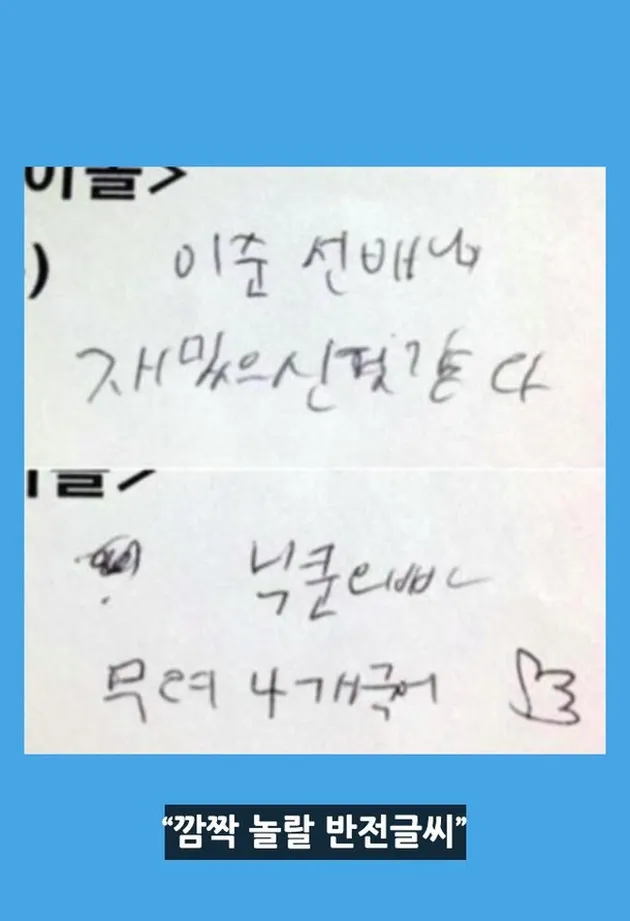 )
이준 선배님
재밌으신 것 같다
닉쿤오빠
무려 4개국어
“깜짝 놀랄 반전글씨”